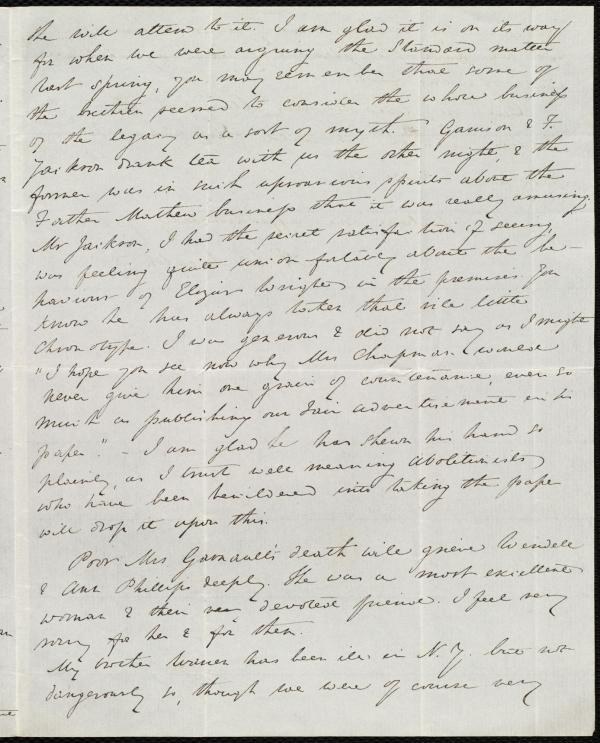 She will attend to it. I am glad it is on its way
for when we were arguing the Standard matter
last spring, you may remember that some of
the brethren seemed to consider the whole business
of the legacy as a sort of myth. Garrison & F.
Jackson drank tea with us the other night, & the
former was in such uproarious spirits about the
Father Mathew business that it was really amusing.
Mr Jackson, I had the secret satisfaction of seeing,
was feeling quite uncomfortably about the be-
haviour of Elizur Wright in the premises. You
know he has always taken that vile little
Chronotype. I was generous & did not say as I might
"I hope you see now why Mrs Chapman would
never give him one grain of countenance, even so
much as publishing our Fair advertisement in his
paper." - I am glad he has shewn his hand so
plainly, as I trust well meaning abolitionists
who have been bewildered into taking the paper
will drop it upon this.
Poor Mrs Garnault's death will grieve Wendell
& Ann Phillips deeply. She was a most excellent
woman & their devoted friend. I feel very
sorry for her & for them.
My brother Warren has been ill in N. Y. but not
dangerously so, though we were of course very